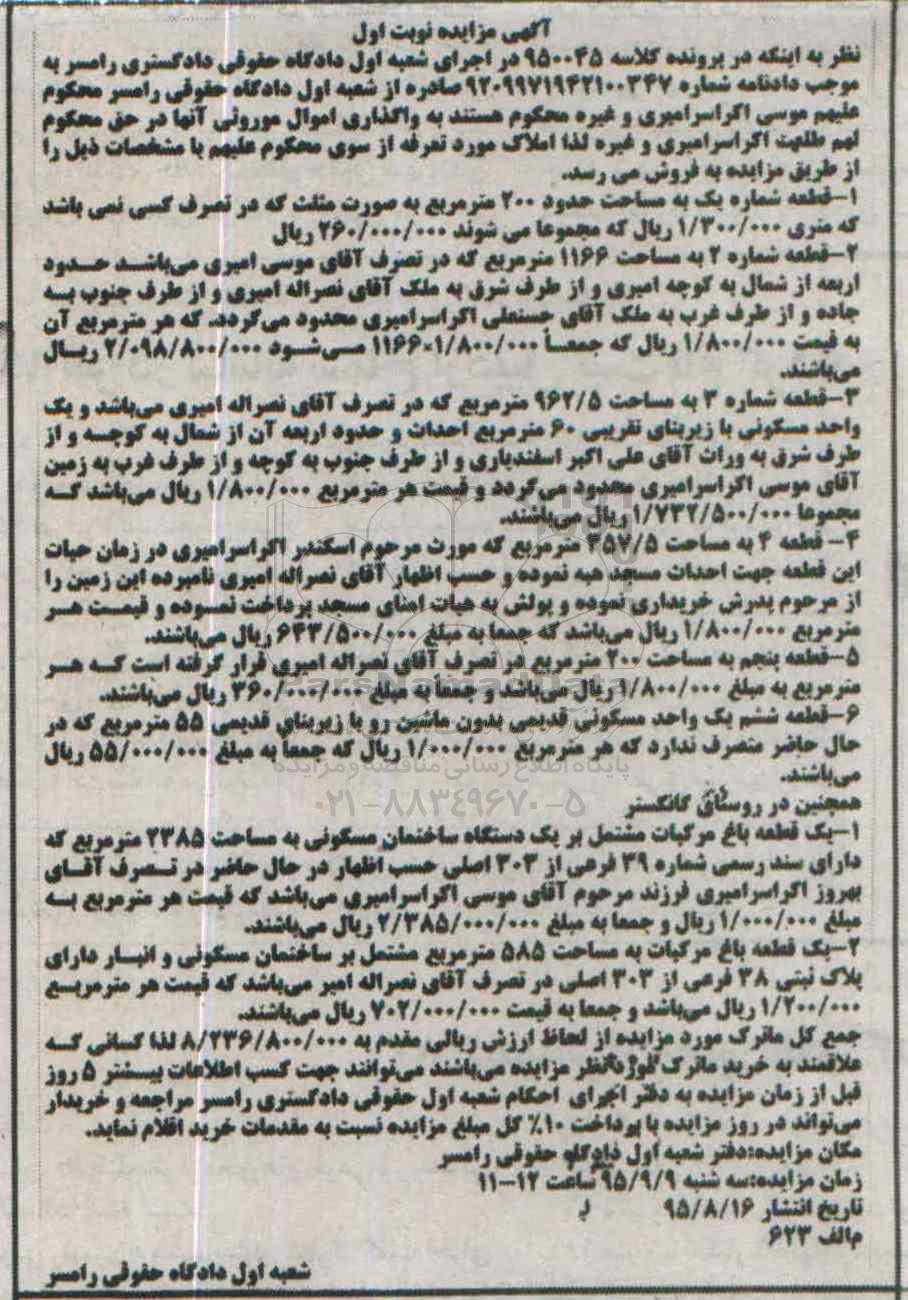 آگهی مزایده نوبت اول
نظر به اینکه در پرونده کلاسه ۹۵۰۰۴۵ در اجرای شعبه اول دادگاه حقوقی دادگستری رامسر به
موجب دادنامه شماره ۹۲۰۹۹۷۱۹۴۲۱۰۰۳۴۷ صادره از شعبه اول دادگاه حقوقی رامسر محکوم
علیهم موسی اکراسرامیری و غیره محکوم هستند به واگذاری اموال موروثی آنها در حق محکوم
لهم طلعت اکراسرامیری و غیره لذا املاک مورد تعرفه از سوی محکوم علیهم با مشخصات ذیل را
از طریق مزایده به فروش می رسد.
۱-قطعه شماره یک به مساحت حدود ۲۰۰ مترمربع به صورت مثلث که در تصرف کسی نمی باشد
که متری ۱/۳۰۰/۰۰۰ ریال که مجموعا می شوند ۲۶۰/۰۰۰/۰۰۰ ریال
۲-قطعه شماره ۲ به مساحت ۱۱۶۶ مترمربع که در تصرف آقای موسی امیری می‌باشد حدود
اربعه از شمال به کوچه امیری و از طرف شرق به ملک آقای نصراله امیری و از طرف جنوب به
جاده و از طرف غرب به ملک آقای حسنعلی اکراسرامیری محدود می‌گردد. که هر مترمربع آن
به قیمت ۱/۸۰۰/۰۰۰ ریال که جمعاً ۱/۸۰۰/۰۰۰×۱۱۶۶ می‌شود ۲/۰۹۸/۸۰۰/۰۰۰ ریال
می‌باشند.
۳-قطعه شماره ۳ به مساحت ۹۶۲/۵ مترمربع که در تصرف آقای نصراله امیری می‌باشد و یک
واحد مسکونی با زیربنای تقریبی ۶۰ مترمربع احداث و حدود اربعه آن از شمال به کوچه و از
طرف شرق به وراث آقای علی اکبر اسفندیاری و از طرف جنوب به کوچه و از طرف غرب به زمین
آقای موسی اکراسرامیری محدود می‌گردد و قیمت هر مترمربع ۱/۸۰۰/۰۰۰ ریال می‌باشد که
مجموعا ۱/۷۳۲/۵۰۰/۰۰۰ ریال می‌باشند.
۴- قطعه ۴ به مساحت ۳۵۷/۵ مترمربع که مورث مرحوم اسکندر اکراسرامیری در زمان حیات
این قطعه جهت احداث مسجد هبه نموده و حسب اظهار آقای نصراله امیری نامبرده این زمین را
از مرحوم پدرش خریداری نموده و پولش به هیات امنای مسجد پرداخت نموده و قیمت هر
مترمربع ۱/۸۰۰/۰۰۰ ریال می‌باشد که جمعا به مبلغ ۶۴۳/۵۰۰/۰۰۰ ریال می‌باشند.
۵-قطعه پنجم به مساحت ۲۰۰ مترمربع در تصرف آقای نصراله امیری قرار گرفته است که هر
مترمربع به مبلغ ۱/۸۰۰/۰۰۰ ریال می‌باشد و جمعا به مبلغ ۳۶۰/۰۰۰/۰۰۰ ریال می‌باشند.
۶-قطعه ششم یک واحد مسکونی قدیمی بدون ماشین رو با زیربنای قدیمی ۵۵ مترمربع که در
حال حاضر متصرف ندارد که هر مترمربع ۱/۰۰۰/۰۰۰ ریال که جمعاً به مبلغ ۵۵/۰۰۰/۰۰۰ ریال
می‌باشند.
پایگاه اطلاع رسانی مناقصه و مزایده
همچنین در روستای کانکستر
۰۲۱-۸۸۳۴۹۶۷۰-۵
۱-یک قطعه باغ مرکبات مشتمل بر یک دستگاه ساختمان مسکونی به مساحت ۲۳۸۵ مترمربع که
دارای سند رسمی شماره ۳۹ فرعی از ۳۰۳ اصلی حسب اظهار در حال حاضر در تصرف آقای
بهروز اکراسرامیری فرزند مرحوم آقای موسی اکراسرامیری می‌باشد که قیمت هر مترمربع به
مبلغ ۱/۰۰۰/۰۰۰ ریال و جمعا به مبلغ ۲/۳۸۵/۰۰۰/۰۰۰ ریال می‌باشند.
۲-یک قطعه باغ مرکبات به مساحت ۵۸۵ مترمربع مشتمل بر ساختمان مسکونی و انبار دارای
پلاک ثبتی ۳۸ فرعی از ۳۰۳ اصلی در تصرف آقای نصراله امیر می‌باشد که قیمت هر مترمربع
۱/۲۰۰/۰۰۰ ریال می‌باشد و جمعا به قیمت ۷۰۲/۰۰۰/۰۰۰ ریال می‌باشند.
جمع کل ماترک مورد مزایده از لحاظ ارزش ریالی مقدم به ۸/۲۳۶/۸۰۰/۰۰۰ لذا کسانی که
علاقمند به خرید ماترک مورد نظر مزایده می‌باشند می‌توانند جهت کسب اطلاعات بیشتر ۵ روز
قبل از زمان مزایده به دفتر اجرای احکام شعبه اول حقوقی دادگستری رامسر مراجعه و خریدار
می‌تواند در روز مزایده با پرداخت ۱۰٪ کل مبلغ مزایده نسبت به مقدمات خرید اقلام نماید.
مکان مزایده:دفتر شعبه اول دادگاه حقوقی رامسر
زمان مزایده:سه شنبه ۹۵/۹/۹ ساعت ۱۲-۱۱
تاریخ انتشار ۹۵/۸/۱۶
م‌الف ۶۲۳
شعبه اول دادگاه حقوقی رامسر